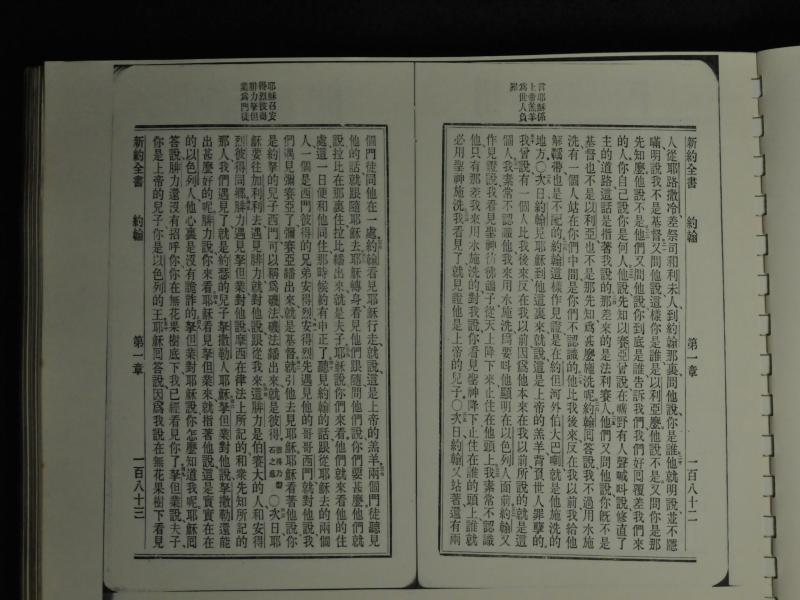 言耶穌係
上帝羔羊
爲世人負
罪
新約全書 約翰 第一章 一百八十二
人從耶路撒冷差祭司和利未人到約翰那裏問他說你是誰他就明說並不隱
瞞明說我不是基督又問他說這樣你是誰是以利亞麽他說不是又問你是那
先知麽他說不是他們又問他說你到底是誰告訴我們我們好回覆差我們來
的人你自己說你是何人他說先知以賽亞曾說在曠野有人聲喊呌說修直了
主的道路這話是指着我說的那差來的是法利賽人他們又問他說你旣不是
基督也不是以利亞也不是那先知爲甚麽施洗呢約翰回答說我不過用水施
洗有一個人站在你們中間是你們不認識的他比我後來反在我以前我給他
解鞋帶也是不配的約翰這樣作見證是在約但河外伯大巴喇就是他施洗的
地方○次日約翰見耶穌到他這裏來就說這是上帝的羔羊背負世人罪孽的
我曾說有一個人比我後來反在我以前因爲他本來在我以前所說的就是這
個人我素常不認識他我來用水施洗爲要呌他顯明在以色列人面前約翰又
作見證說我看見聖神彷彿鴿子從天上降下來止住在他頭上我素常不認識
他只有那差我來用水施洗的對我說你看見聖神降下止住在誰的頭上誰就
必用聖神施洗我看見了就見證他是上帝的兒子○次日約翰又站著還有兩
耶穌召安
得烈彼得
腓力拏但
業爲門徒
新約全書 約翰 第一章 一百八十三
個門徒同他在一處約翰看見耶穌行走就說這是上帝的羔羊兩個門徒聽見
他的話就跟隨耶穌耶穌轉身看見他們跟隨問他們說你們要甚麽他們就
說拉比在那裏住拉比繙出來就是夫子耶穌說你們來看他們就來看他的住
處這一日便和他同住那時候約有申正了聽見約翰的話跟從耶穌去的兩個
人一個是西門彼得的兄弟安得烈安得烈先遇見他的哥哥西門就對他說我
們遇見彌賽亞了彌賽亞繙出來就是基督就引他去見耶穌耶穌看著他說你
是約拏的兒子西門可以稱爲磯法磯法繙出來就是彼得○次日耶
穌要往加利利去遇見腓力就對他說跟從我來這腓力是伯賽大的人和安得
烈彼得同城腓力遇見拏但業對他說摩西在律法上所記的和衆先知所記的
那人我們遇見了就是約瑟的兒子拏撒勒人耶穌拏但業對他說拏撒勒還能
出甚麽好的呢腓力說你來看耶穌看見拏但業來就指著他說這是實實在在
的以色列人他心裏是沒有詭詐的拏但業對耶穌說你怎麽知道我呢耶穌回
答說腓力還沒有招呼你你在無花果樹底下我已經看見你了拏但業說夫子
你是上帝的兒子你是以色列的王耶穌回答說因爲我說在無花果樹下看見